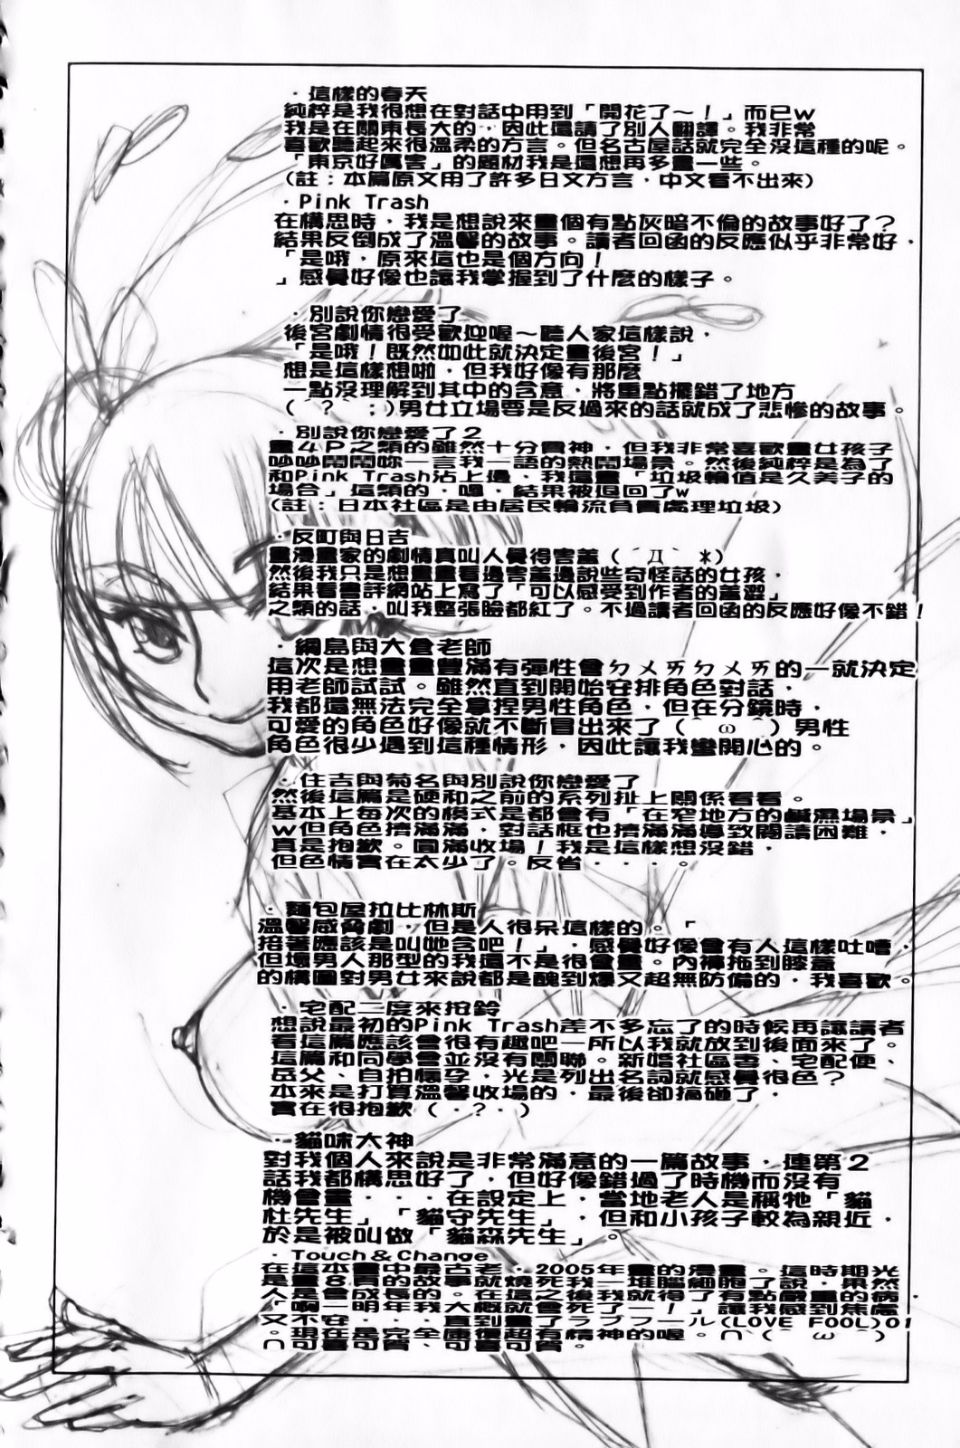 ・這樣的春天
純粹是我很想在對話中用到「開花了～！」而已w
我是在關東長大的，因此還請了別人翻譯。我非常
喜歡聽起來很溫柔的方言。但名古屋話就完全沒這種的呢。
「東京好厲害」的題材我是還想再多畫一些。
(註：本篇原文用了許多日文方言，中文看不出來)
・Pink Trash
在構思時，我是想說來畫個有點灰暗不倫的故事好了？
結果反倒成了溫馨的故事。讀者回函的反應似乎非常好，
「是哦，原來這也是個方向！
」感覺好像也讓我掌握到了什麼的樣子。
・別說你戀愛了
後宮劇情很受歡迎喔～聽人家這樣說，
「是哦！既然如此就決定畫後宮！」
想是這樣想啦，但我好像有那麼
一點沒理解到其中的含意，將重點擺錯了地方
( ? ；)男女立場要是反過來的話就成了悲慘的故事。
・別說你戀愛了2
畫4P之類的雖然十分費神，但我非常喜歡畫女孩子
吵吵鬧鬧妳一言我一語的熱鬧場景。然後純粹是為了
和Pink Trash沾上邊，我還畫「垃圾輪值是久美子的
場合」這類的，嗯，結果被退回了w
(註：日本社區是由居民輪流負責處理垃圾)
・反町與日吉
畫漫畫家的劇情真叫人覺得害羞(´Д｀*)
然後我只是想畫畫看邊害羞邊說些奇怪話的女孩，
結果看書評網站上寫了「可以感受到作者的羞澀」
之類的話，叫我整張臉都紅了。不過讀者回函的反應好像不錯！
・綱島與大倉老師
這次是想畫畫豐滿有彈性會ㄉㄨㄞㄉㄨㄞ的—就決定
用老師試試。雖然直到開始安排角色對話，
我都還無法完全拿捏男性角色，但在分鏡時，
可愛的角色好像就不斷冒出來了(´ω｀)男性
角色很少遇到這種情形，因此讓我蠻開心的。
・住吉與菊名與別說你戀愛了
然後這篇是硬和之前的系列扯上關係看看。
基本上每次的模式是都會有「在宅地方的鹹濕場景」
w但角色擠滿滿，對話框也擠滿滿導致閱讀困難，
真是抱歉。圓滿收場！我是這樣想沒錯，
但色情實在太少了。反省・・・。
・麵包屋拉比林斯
溫馨感脅劇，但是人很呆這樣的。「
接著應該是叫她含吧！」，感覺好像會有人這樣吐嘈，
但壞男人那型的我還不是很會畫。內褲拖到膝蓋
的構圖對男女來說都是醜到爆又超無防備的，我喜歡。
・宅配二度來按鈴
想說最初的Pink Trash差不多忘了的時候再讓讀者
看這篇應該會很有趣吧—所以我就放到後面來了。
這篇和同學會並沒有關聯。新婚社區妻、宅配便、
岳父、自拍懷孕，光是列出名詞就感覺很色？
本來是打算溫馨收場的，最後卻搞砸了，
實在很抱歉(・?・)
・貓咪大神
對我個人來說是非常滿意的一篇故事，連第2
話我都構思好了，但好像錯過了時機而沒有
機會畫・・・在設定上，當地老人是稱牠「貓
杜先生」「貓守先生」，但和小孩子較為親近，
於是被叫做「貓森先生」。
・Touch＆Change
在這本書中最古老，2005年畫的漫畫。這時期光
是畫8頁的故事就燒死我一堆腦細胞了說，果然
人是會成長的。在這之後我就得了有點嚴重的病，
「啊—明年我大概就會死了—！」讓我感到焦慮
又不安・・・直到畫了ラブフール(LOVE FOOL)01
。現在是完全康復超有精神的喔。∩`(´ω｀)
∩可喜可賀、可喜可賀。